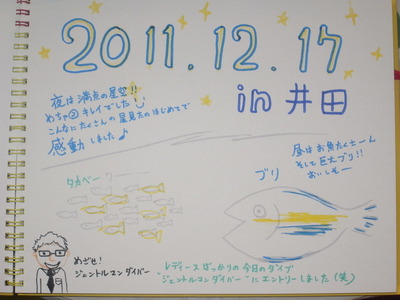 2011.12.17
in 井田
夜は満点の星空!!
めちゃ②キレイでした!
こんなにたくさんの星見たのはじめてで
感動しました♪
昼はお魚たくさーん
そして巨大ブリ!!
おいしそー
タカベー
ブリ
めざせ!
ジェントルマンダイバー
レディースばっかりの今日のダイブ
"ジェントルマンダイバー"にエントリーしました(笑)